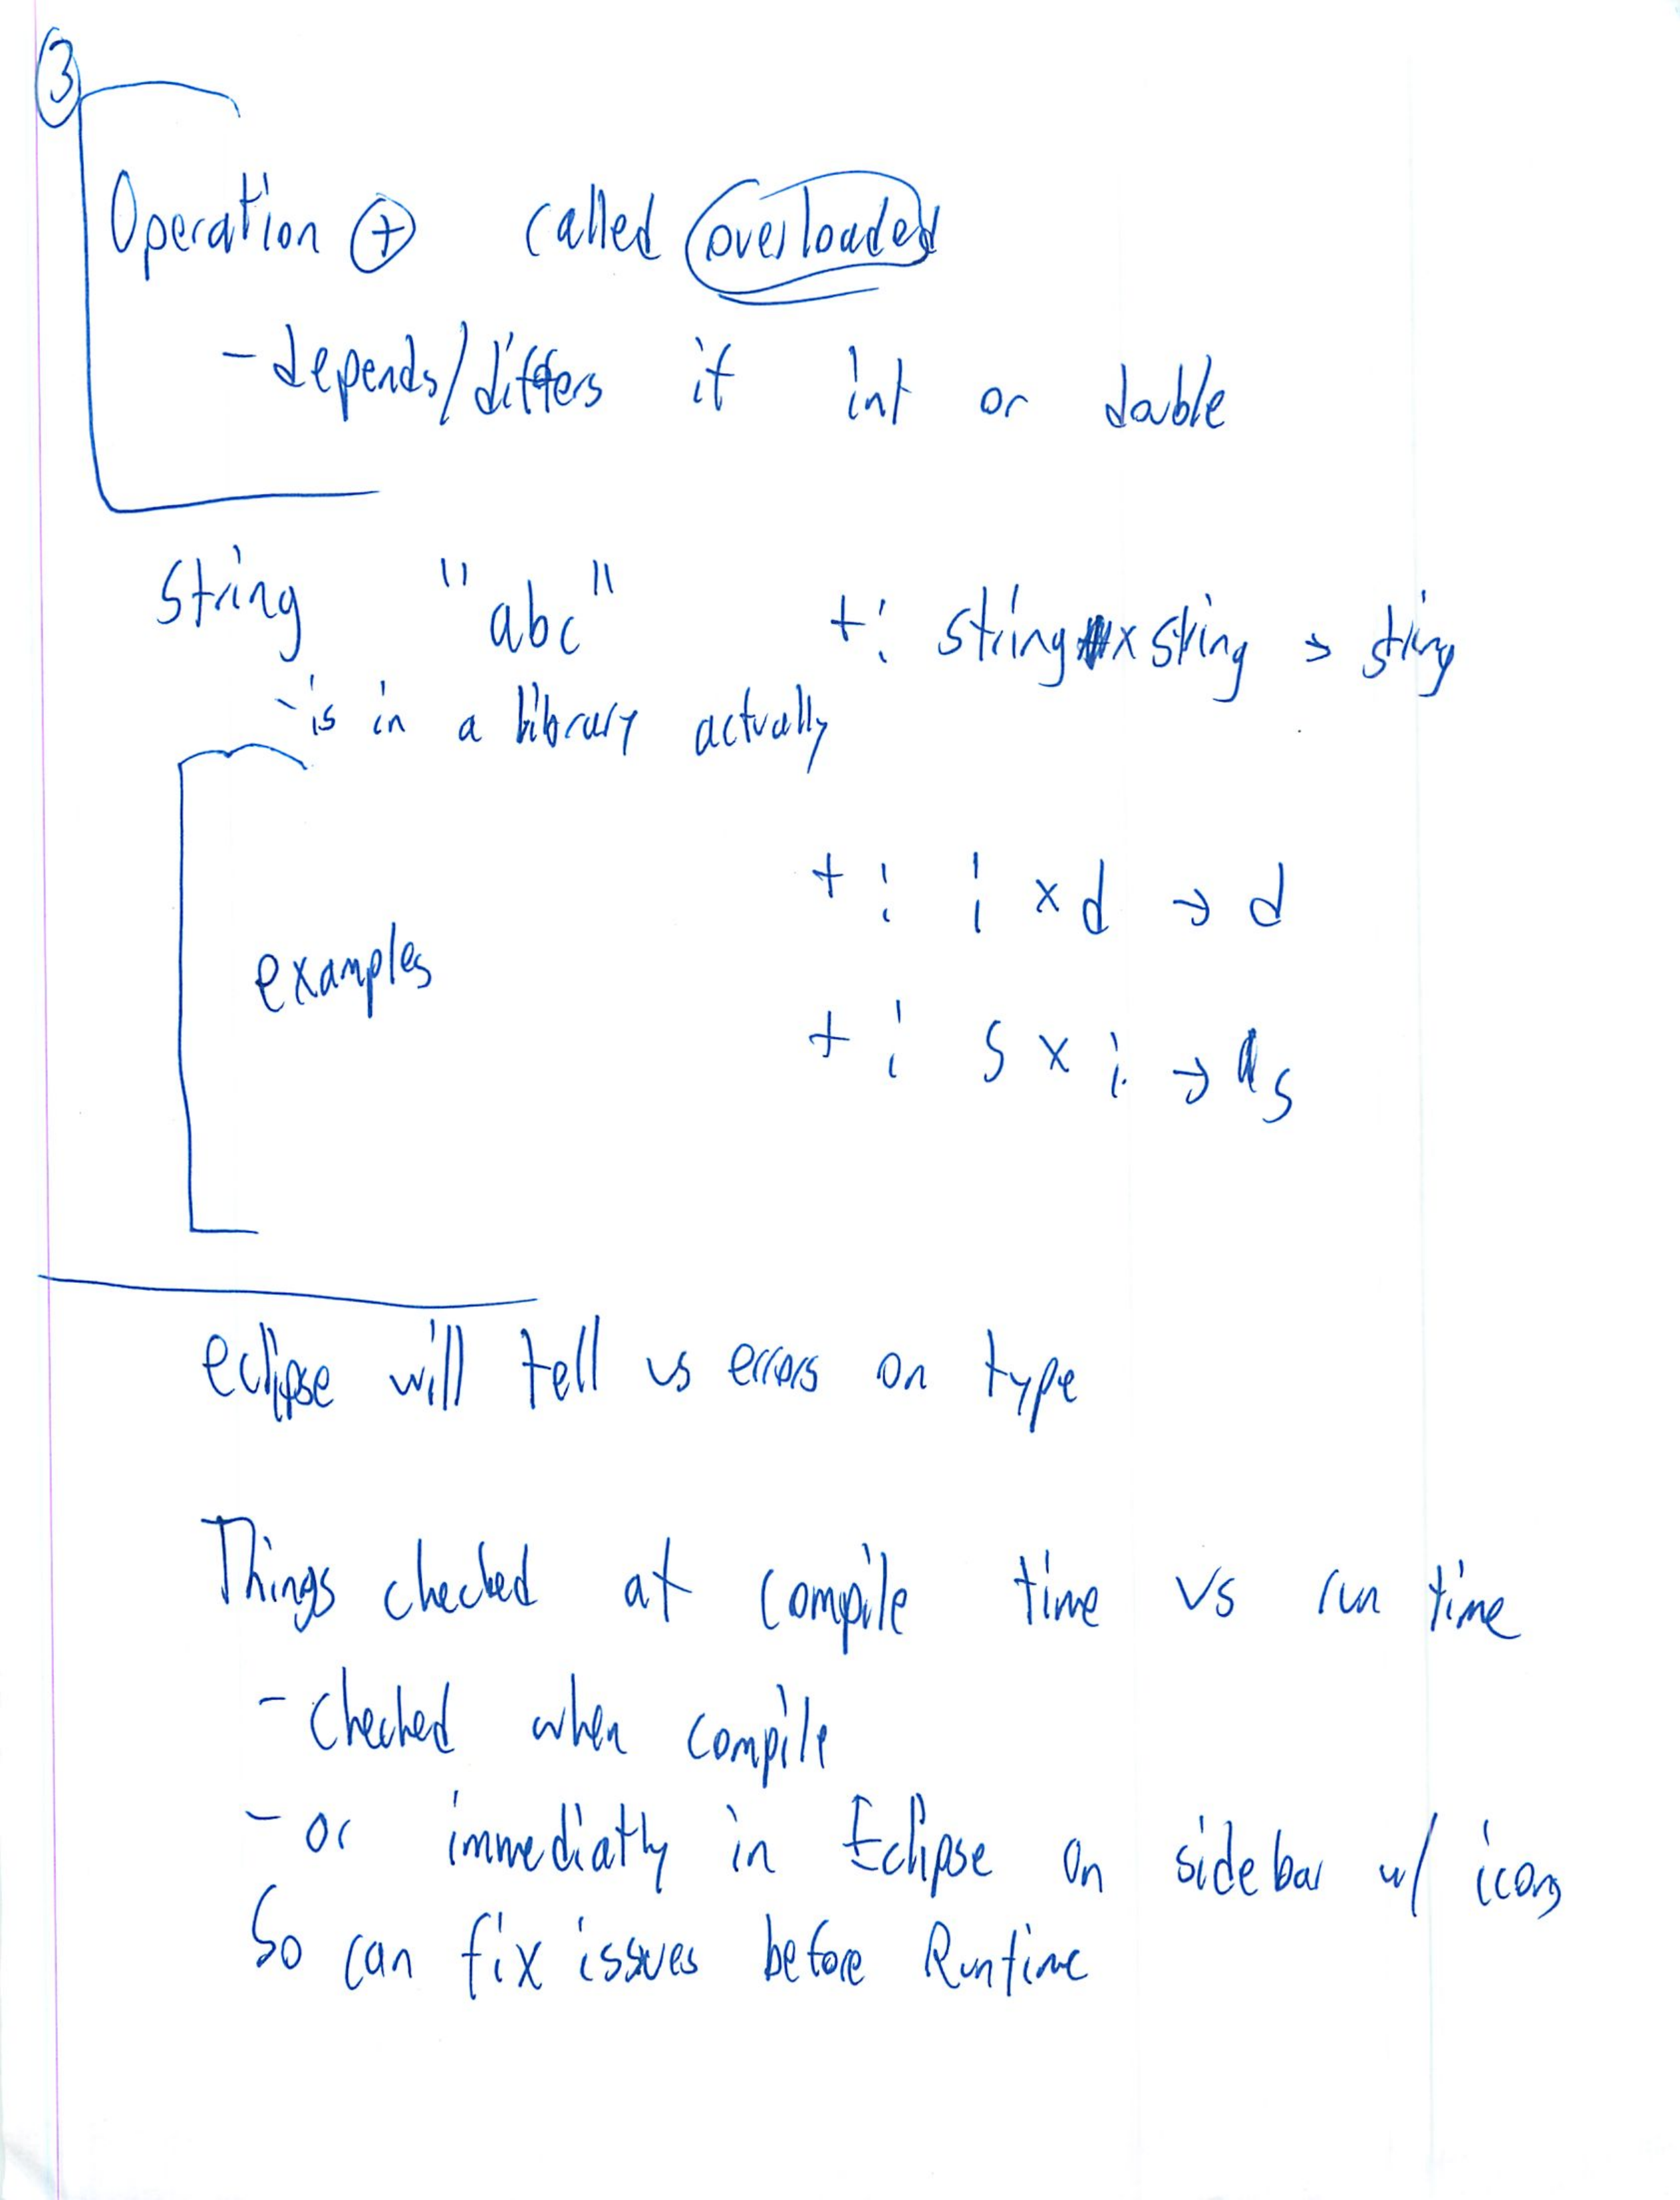 3
Operation + called overloaded
- depends/differs if int or double
String "abc" +: string x string → string
- is in a library actually
+: i x d → d
examples
+: s x i → s
eclipse will tell us errors on type
Things checked at compile time vs run time
- checked when compile
- or immediatly in Eclipse on sidebar w/ icons
So can fix issues before Runtime